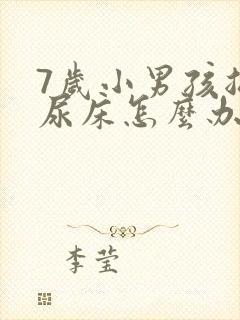 7歲小男孩
尿床怎麼办
李莹